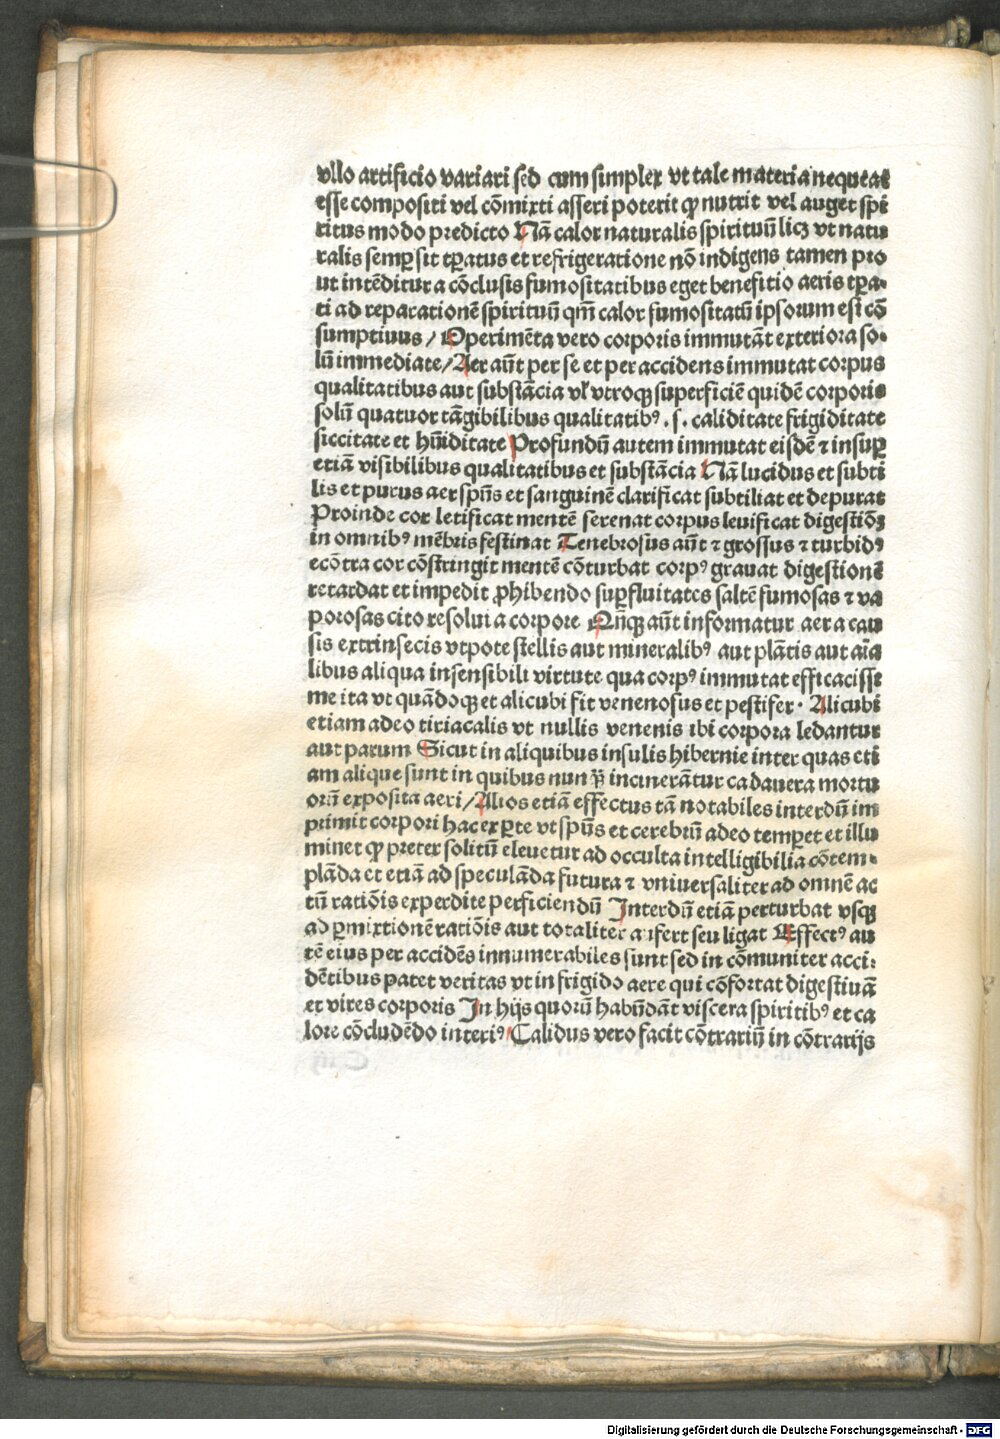 vllo artificio variari sed cum simplex vt tale materia nequeat
esse compositi vel cōmixti asseri poterit ꝙ nutrit vel auget spi
ritus modo predicto Nā calor naturalis spirituū licꝫ vt natu
ralis semꝑ sit tꝑatus et refrigeratione nō indigens tamen pro
ut intēditur a cōclusis fumositatibus eget benefitio aeris tꝑa-
ti ad reparationē spirituū qm̄ calor fumositatū ipsorum est cō
sumptiuus / Operimēta vero corporis immutāt exteriora so-
lū immediate / Aer aūt per se et per accidens immutat corpus
qualitatibus aut substācia vl̓ vtroqꝫ superficiē quidē corporis
solū quatuor tāgibilibus qualitatibꝰ . s . caliditate frigiditate
siccitate et hūiditate Profundū autem immutat eisdē ⁊ insuꝑ
etiā visibilibus qualitatibus et substācia Nā lucidus et subti
lis et purus aer spūs et sanguinē clarificat subtiliat et depurat
Proinde cor letificat mentē serenat corpus leuificat digestiōꝫ
in omnibꝰ mēbris festinat Tenebrosus aūt ⁊ grossus ⁊ turbidꝰ
ecōtra cor cōstringit mentē cōturbat corpꝰ grauat digestionē
retardat et impedit ꝓhibendo suꝑfluitates saltē fumosas ⁊ va
porosas cito resolui a corpore Qn̄qꝫ aūt informatur aer a cau
sis extrinsecis vtpote stellis aut mineralibꝰ aut plātis aut aīa
libus aliqua insensibili virtute qua corpꝰ immutat efficacissi
me ita vt quādoqꝫ et alicubi fit venenosus et pestifer . Alicubi
etiam adeo tiriacalis vt nullis venenis ibi corpora ledantur
aut parum Sicut in aliquibus insulis hibernie inter quas eti
am alique sunt in quibus nun ꝙ̄ incinerātur cadauera mortu
orū exposita aeri / Alios etiā effectus tā notabiles interdū im
primit corpori hac ex ꝑte vt spūs et cerebrū adeo temꝑet et illu
minet ꝙ preter solitū eleuetur ad occulta intelligibilia cōtem-
plāda et etiā ad speculāda futura ⁊ vniuersaliter ad omnē ac
tū ratiōis experdite perficiendū Interdū etiā perturbat vsqꝫ
ad ꝑmixtionē ratiōis aut totaliter aufert seu ligat Effectꝰ au
tē eius per accidēs innumerabiles sunt sed in cōmuniter acci:
dētibus patet veritas vt in frigido aere qui cōfortat digestiuā
et vires corporis In hijs quorū habūdāt viscera spiritibꝰ et ca
lore cōcludēdo interiꝰ Calidus vero facit cōtrariū in cōtrarijs
Digitalisierung gefördert durch die Deutsche Forschungsgemeinschaft - DFG